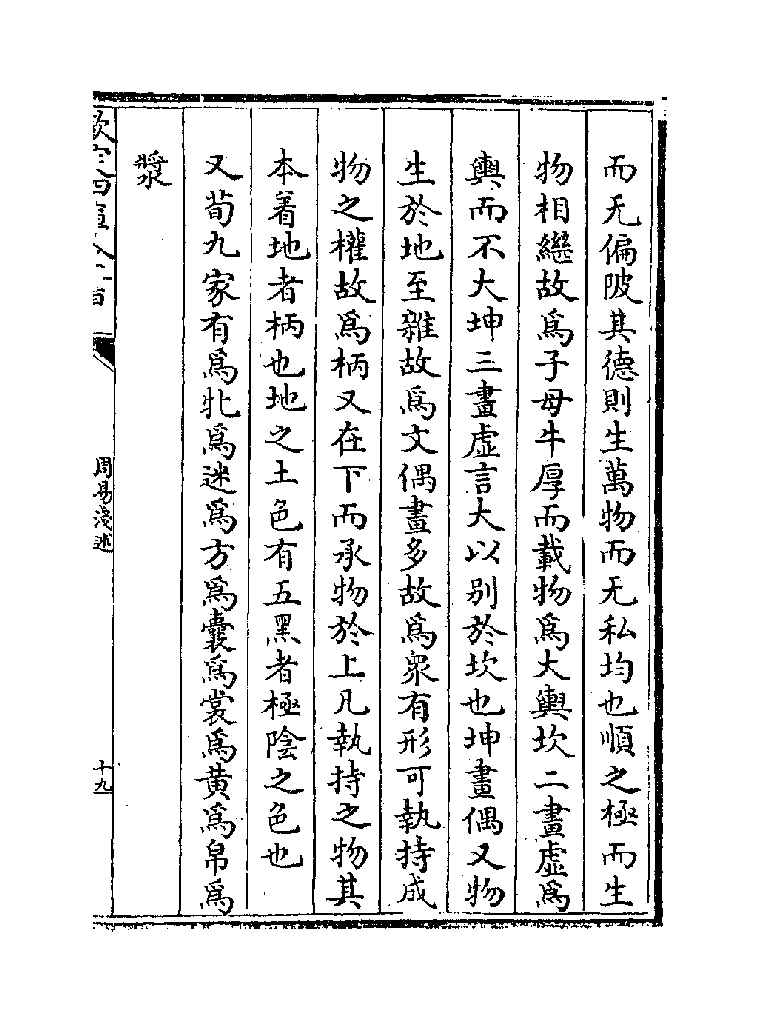 而无偏陂其德則生萬物而无私均也順之極而生
物相繼故為子母牛厚而載物為大輿坎二畫虛為
輿而不大坤三畫虛言大以别於坎也坤畫偶又物
生於地至雜故為文偶畫多故為衆有形可執持成
物之權故為柄又在下而承物於上凡執持之物其
本着地者柄也地之土色有五黑者極陰之色也
又荀九家有為牝為迷為方為囊為裳為黄為帛為
漿
周易淺述
十九